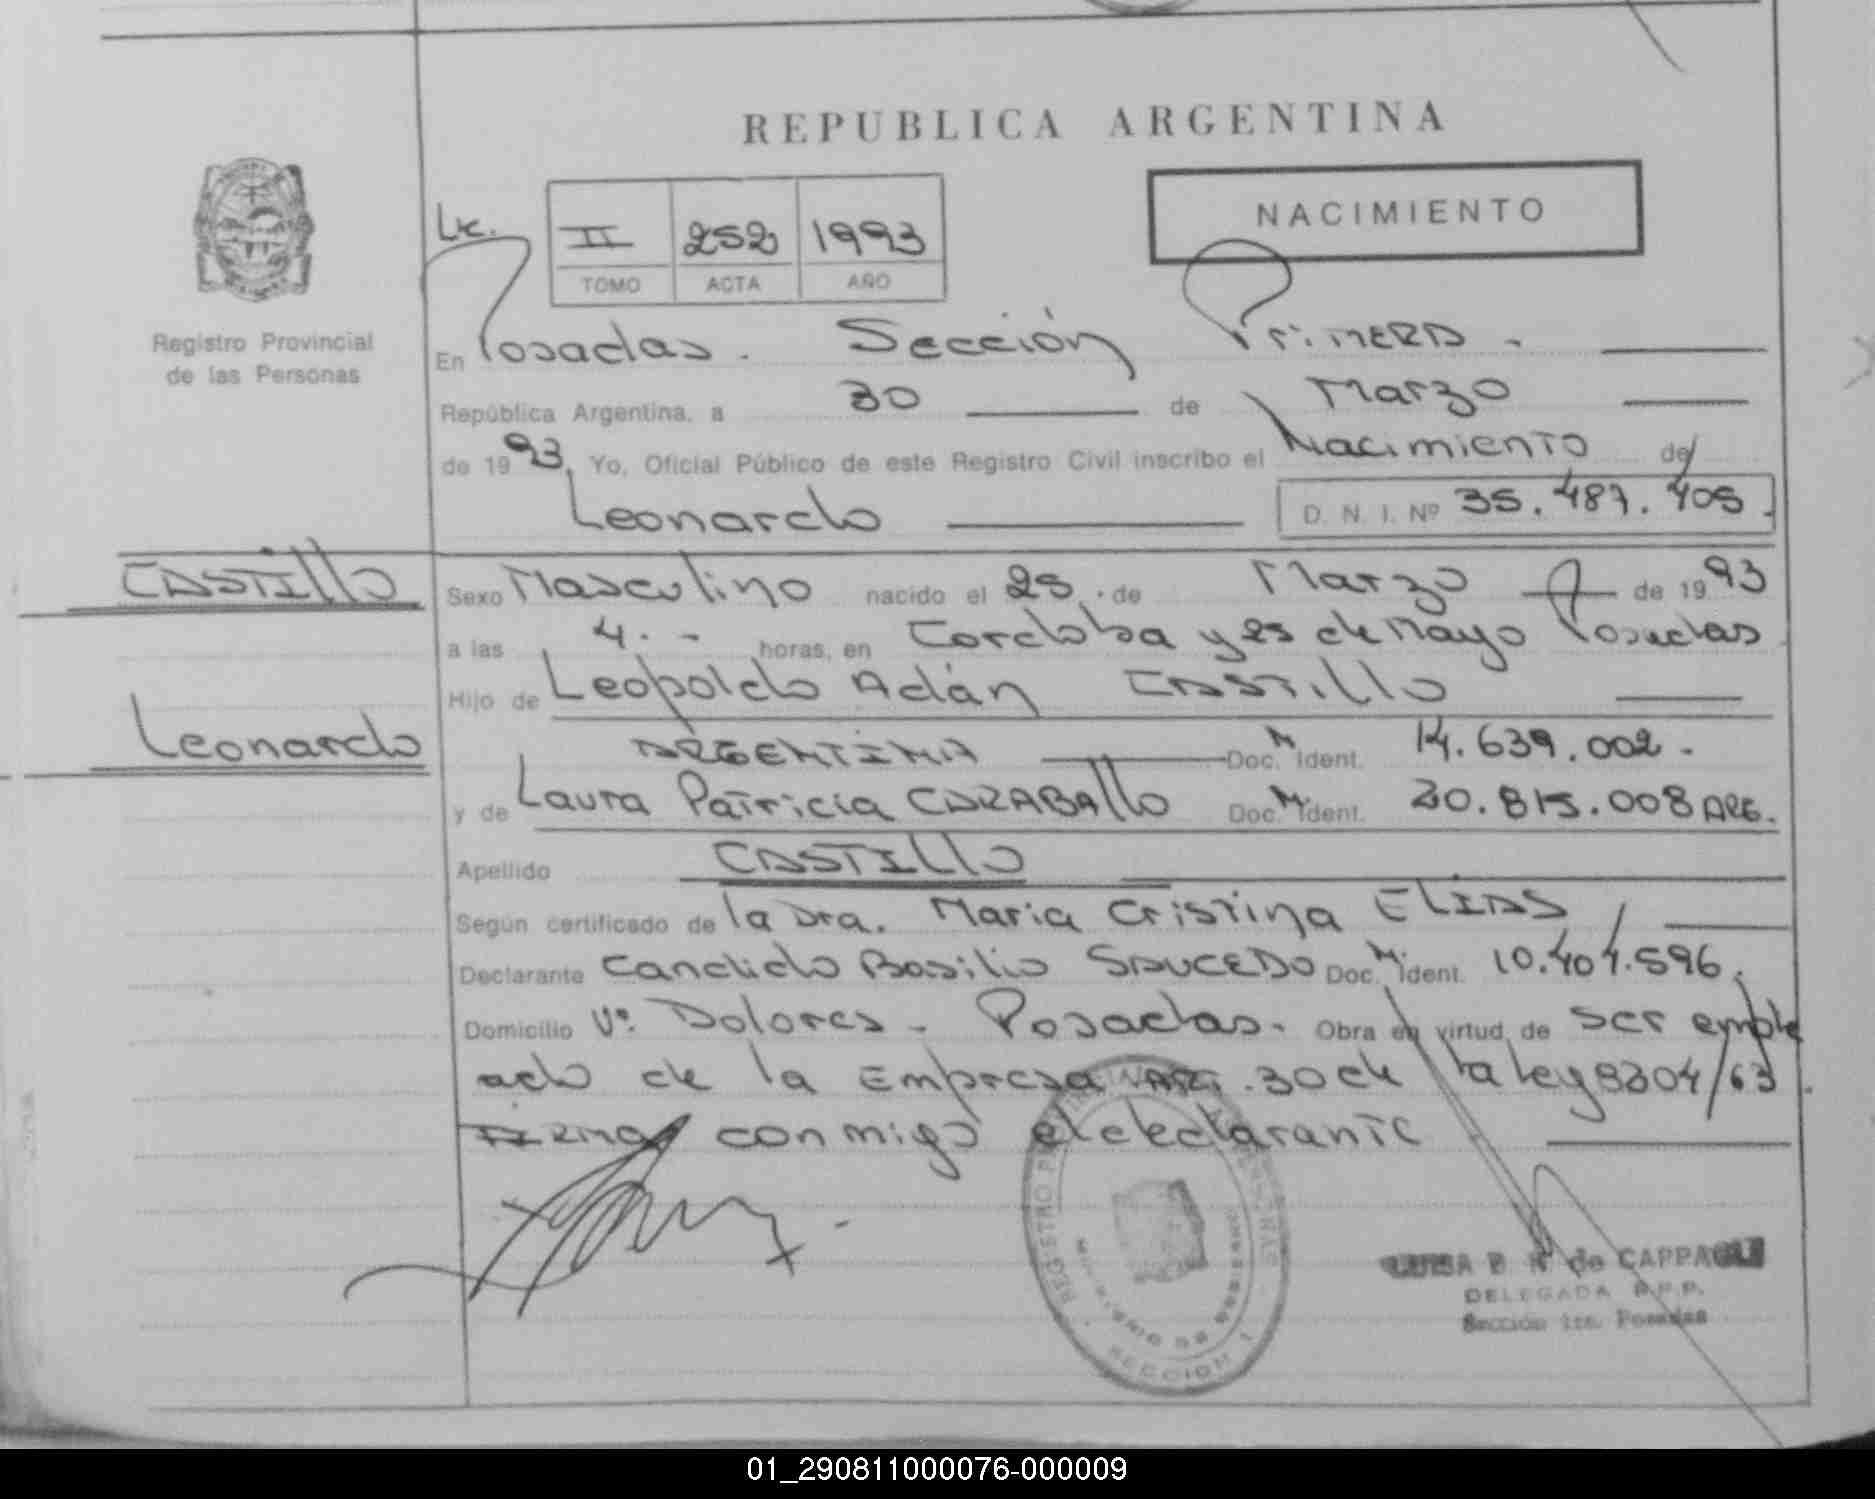 REPUBLICA ARGENTINA
NACIMIENTO
Lic.
II 252 1993
TOMO ACTA AÑO
Registro Provincial
de las Personas
En Posadas. Sección Primera.
República Argentina, a 30 de Marzo
de 1993, Yo, Oficial Público de este Registro Civil inscribo el Nacimiento de
Leonardo D. N. I. Nº 35.487.405.
CASTILLO
Sexo Masculino nacido el 25. de Marzo de 1993
a las 4.- horas, en Cordoba y 25 de Mayo Posadas
Hijo de Leopoldo Adán CASTILLO
Leonardo
ARGENTINA Doc. M Ident. 14.639.002.
y de Laura Patricia CARABALLO Doc. M. Ident. 20.815.008 ARG.
Apellido CASTILLO
Según certificado de la Dra. Maria Cristina ELIAS
Declarante Candido Basilio SAUCEDO Doc. M. Ident. 10.404.596.
Domicilio Vº. Dolores. Posadas. Obra en virtud de ser emple
ado de la Empresa ART. 30 de la ley 8204/63.
FIRMA conmigo el declarante
REGISTRO PROVINCIAL DE LAS PERSONAS
MINISTERIO DE GOBIERNO
SECCION 1
de CAPPA
DELEGADA R.P.P.
Sección 1ra. Posadas
01_290811000076-000009